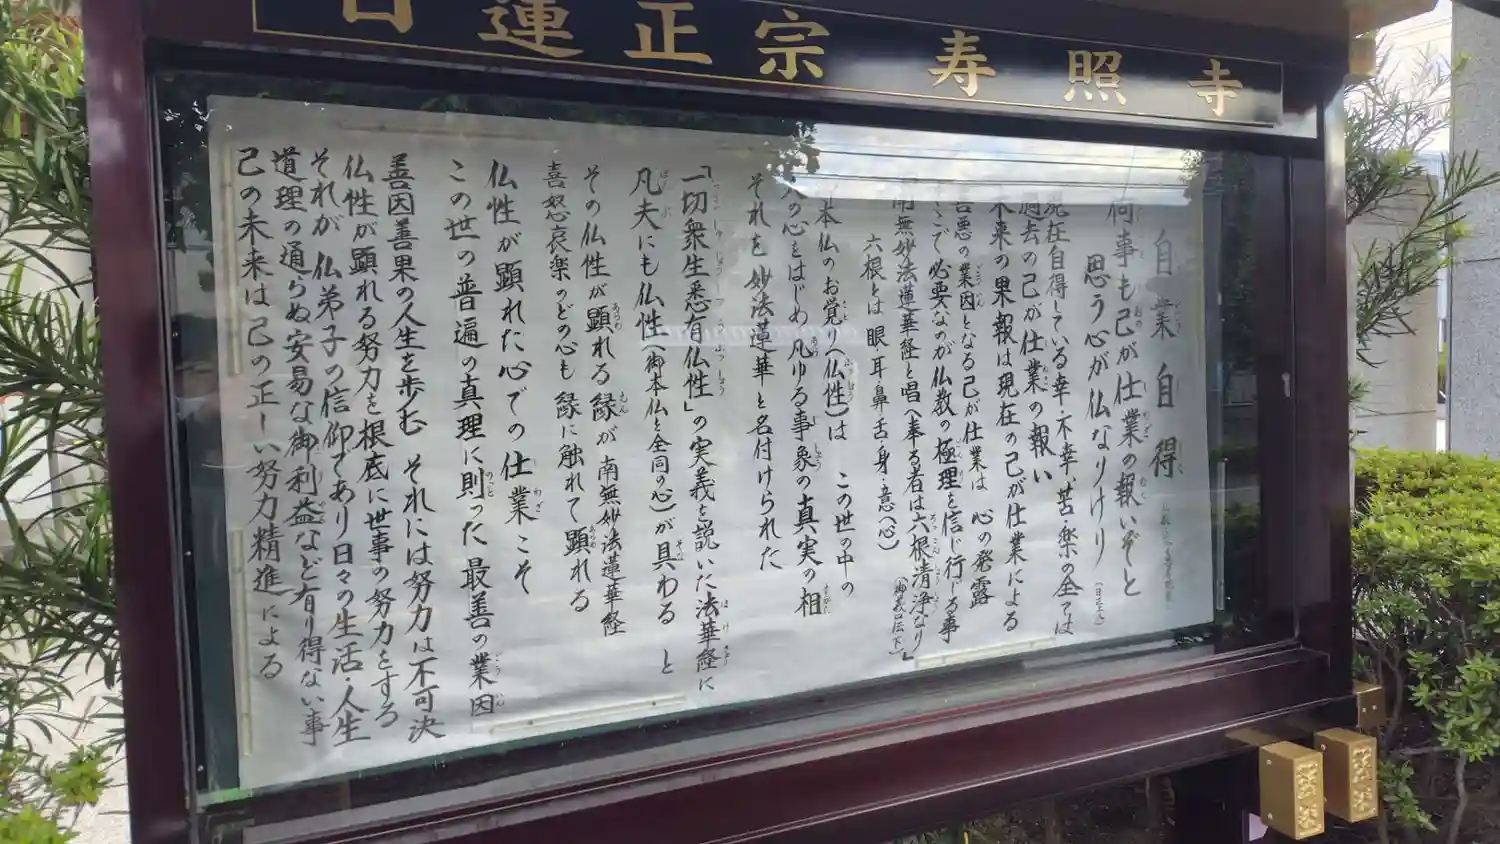 日蓮正宗 寿照寺
自業自得
何事も己が仕業の報いぞと
思う心が仏なりけり
現在自得している幸・不幸、苦・楽の全ては
過去の己が仕業の報い
未来の果報は現在の己が仕業による
善悪の業因となる己が仕業は 心の発露
そこで必要なのが仏教の極理を信じ行ずる事
「南無妙法蓮華経と唱へ奉る者は六根清浄なり」
(御義口伝下)
六根とは 眼・耳・鼻・舌・身・意(心)
本仏のお覚り(仏性)は この世の中の
人の心をはじめ 凡ゆる事象の真実の相
それを 妙法蓮華と名付けられた
「一切衆生悉有仏性」の実義を説いた法華経に
凡夫にも仏性(御本仏と全同の心)が具わる と
その仏性が顕れる縁が 南無妙法蓮華経
喜怒哀楽のどの心も 縁に触れて顕れる
仏性が顕れた心での仕業こそ
この世の普遍の真理に則った 最善の業因
善因善果の人生を歩む それには努力は不可決
仏性が顕れる努力を根底に世事の努力をする
それが 仏弟子の信仰であり日々の生活・人生
道理の通らぬ安易な御利益など有り得ない事
己の未来は己の正しい努力精進による